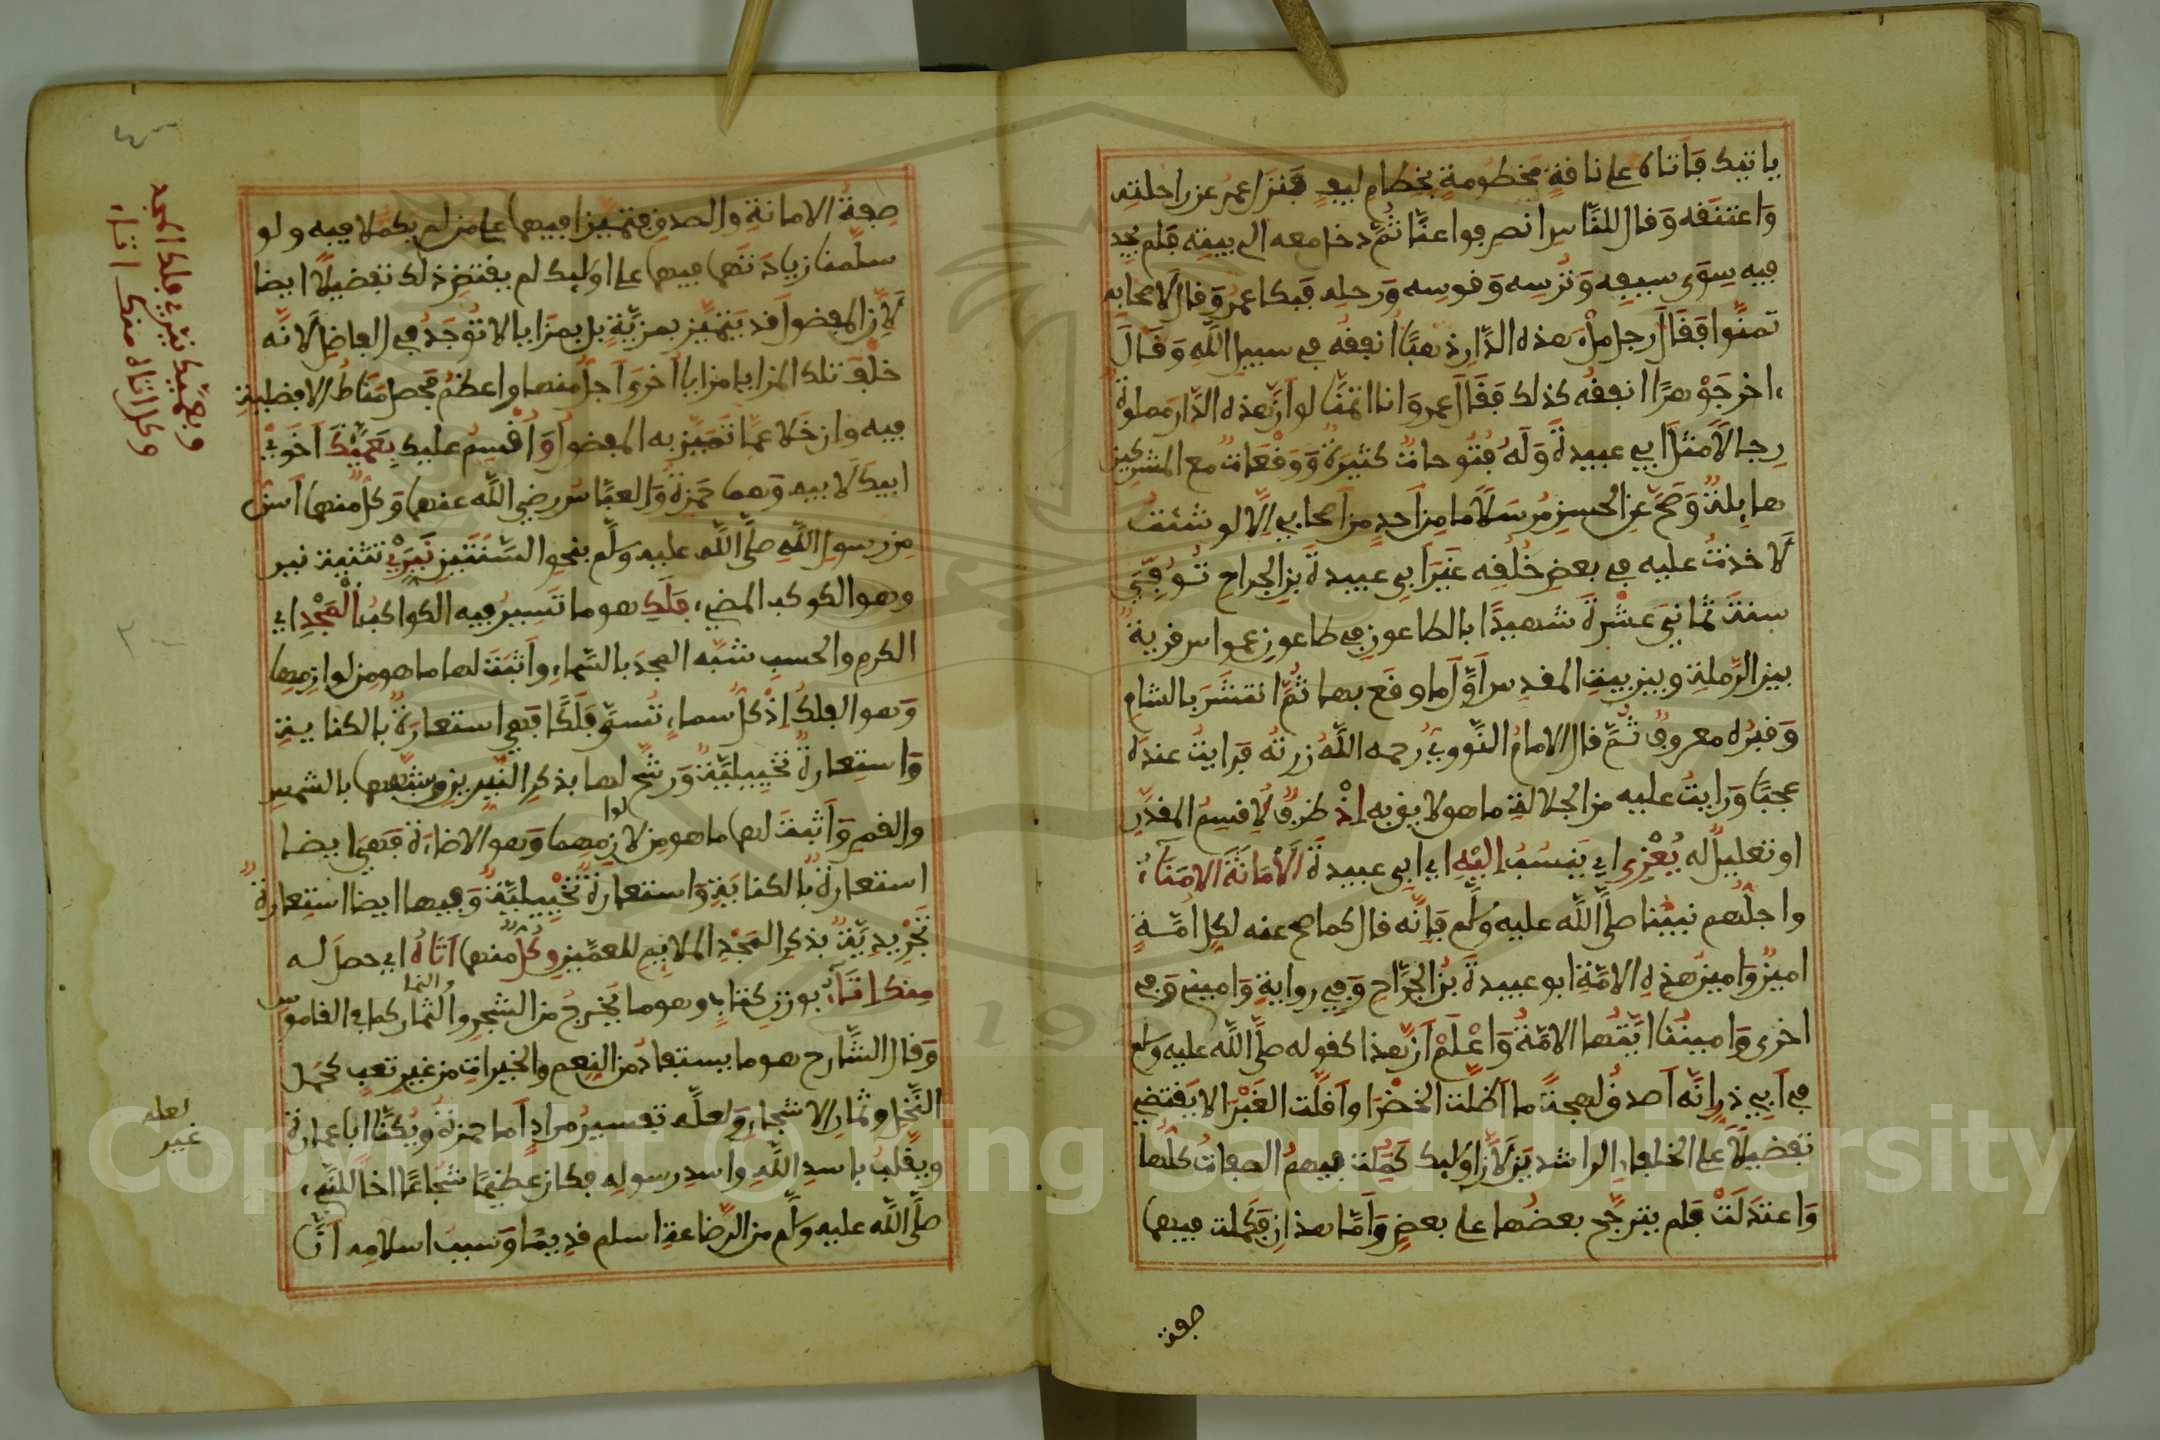 ياتيك فاتاه على ناقة مخطومة بخطام ليف فنزل عمر عن راحلته
وَاعتنقه وَقال للناس انصرفوا عنّا ثُمَّ دخل معه الى بيته فلم يجد
فيه سِوَى سيفِه وَتُرسِه وَقوسِه وَرحلِه فبكا عمرُ وَقال لاصحابه
تمنَّوا فقَال رجل مِلْءَ هذه الدَّار ذهبًا انفقه في سبيل اللَّه وَقال
اخر جَوْهرًا انفقُه كذلك فقَال عمر وَانا اتمنَّا لو اَنَّ هذه الدَّار مملوةٌ
رجالاً مثلَ ابي عبيدةَ وَلَهُ فتُوحاتٌ كثيرةٌ وَوَقْعَاتٌ مع المشركين
هايلةٌ وَصَحَّ عنِ الحسنِ مُرسَلاً ما مِن اَحدٍ من اَصحابي الاَّ لو شئتُ
لاَخذتُ عليه في بعضِ خُلُقِه غيرَ ابي عبيدةَ بنِ الجراح تُوُفِّيَ
سنةَ ثماني عَشْرةَ شهيدًا بالطاعونِ في طاعونِ عمواس قرية
بين الرَّملةِ وبين بيتِ المقدس اَوَّل ما وقع بها ثُمَّ انتشرَ بالشامِ
وَقبرُه معروفٌ ثُمَّ قال الامامُ النَّوويُّ رحمه اللَّهُ زرتُه فرايتُ عندَه
عجبًا وَرايتُ عليه من الجلالةِ ما هو لايق به اِذْ ظرفٌ لاقسِمُ المقدّرِ
او تعليلٌ له يُعْزى اي يَنسُبُ اِليْهِ اي ابي عبيدة الْاَمَانَةَ الاُمَنَآءُ
واجلُّهم نبيُّنا صلَّى اللَّه عليه وسلَّم فاِنَّه قال كما صح عنه لكلِ اُمَّةٍ
امينٌ وَامينُ هذِه الامَّةِ ابو عبيدةَ بنُ الجرَّاحِ وَفي روايةٍ وَامينى وَفي
اخرى وَامينُنا ايَّتُها الامَّةُ وَاعْلَمْ اَنَّ هذا كقوله صلَّى اللَّه عليه وسلم
في اَبي ذرٍ اِنَّه اَصدقُ لهجةً ما اَظلَّت الخضْرَا واَقلَّت الغَبْرَا لا يَقتضي
تفضيلاً على الخلفاءِ الراشدين لاَنَّ اوليك كَمُلت فيهمُ الصفاتُ كلُّها
وَاعتدَلَتْ فلم يترجَّح بعضُها على بعضٍ وَاَمَّا هذان فكملت فيهما
صفة
صفةُ الامانةِ والصدقِ فتميَّزا فيهما على من لم يكمُلا فيه ولو
سلَّمنا زيادَتَهما فيهما على اوليك لم يقتضِ ذلك تفضيلاً ايضا
لاَنَّ المفضول قد يَتميَّز بمزيَّةٍ بل بمزايا لا تُوجَدُ في الفاضِل لانَّه
خلَّفَ تلك المزايا مزايا اخرَى اَجلُّ منها واعظمُ فحصل مَنَاطُ الافضليةِ
فيه وان خَلا عمَّا تميَّز به المفضول وَاُقْسِم عليك بِعَمَّيْكَ اَخَوَيْ
ابيكَ لابيه وَهما حمزةُ وَالعبَّاسُ رضي اللَّه عنهما وَكلٌّ منهما اَسنّ
مِن رسولِ اللَّهِ صلَّى اللَّه عليه وسلَّم بنحوِ السَّنَتَينِ نَيّرَيْ تثنية نير
وهو الكوكب المضي، فلَكِ هو ما تَسيرُ فيه الكواكبُ الْمَجْدِ اي
الكرمِ والحسبِ شبَّه المجدَ بالسَّماءِ واَثبَتَ لها ما هو مِن لوازِمِها
وَهو الفلكُ اِذْ كُلُّ سماءٍ تُسمَّى فلَكًا فهي استعارَةٌ بالكنايةِ
وَاستِعارةٌ تخييليَّةٌ وَرشَّح لها بذكرِ النَّيِّرينِ وَشبَّههما بالشمسِ
والقمرِ وَاَثبتَ لهما ما هو مِن لازِمِهما وَهو الاضاءَةُ فَهي ايضا
لوا
استعارةٌ بالكنايَةِ وَاستعارَةٌ تخْييليَّةٌ وَفيها ايضا استِعارةٌ
تَجْريدِيَّةٌ بذكرِ المَجْدِ الملايمِ للعمَّينِ وكُلٌّ منهما اَتَاهُ اي حصلَ له
منكَ اِتَآءٌ بوزن كتابٍ وهو ما يَخرجُ من الشجرِ والثمار كما في القاموس
والنما
وَقال الشَّارح هو ما يستفادُ من النِعمِ والخيراتِ من غيرِ تعبٍ كحَمل
النَّخل وثمارِ الاشجارِ وَلعلَّه تفسيرُ مرادٍ اَما حمزةُ ويُكنَّا ابا عمارةَ
ويلقّبُ باسدِ اللَّهِ واسدِ رسولِه فكان عظيمًا شُجاعًا اخا للنَّبي
صلَّى اللَّه عليه وسلَّم من الرَّضاعةِ اسلم قديمًا وَسببُ اسلامِه اَنَّ
وبعميك نيري فلك المجد
وكل اتاه منك اتاء
لعله
غير
Copyright © King Saud University